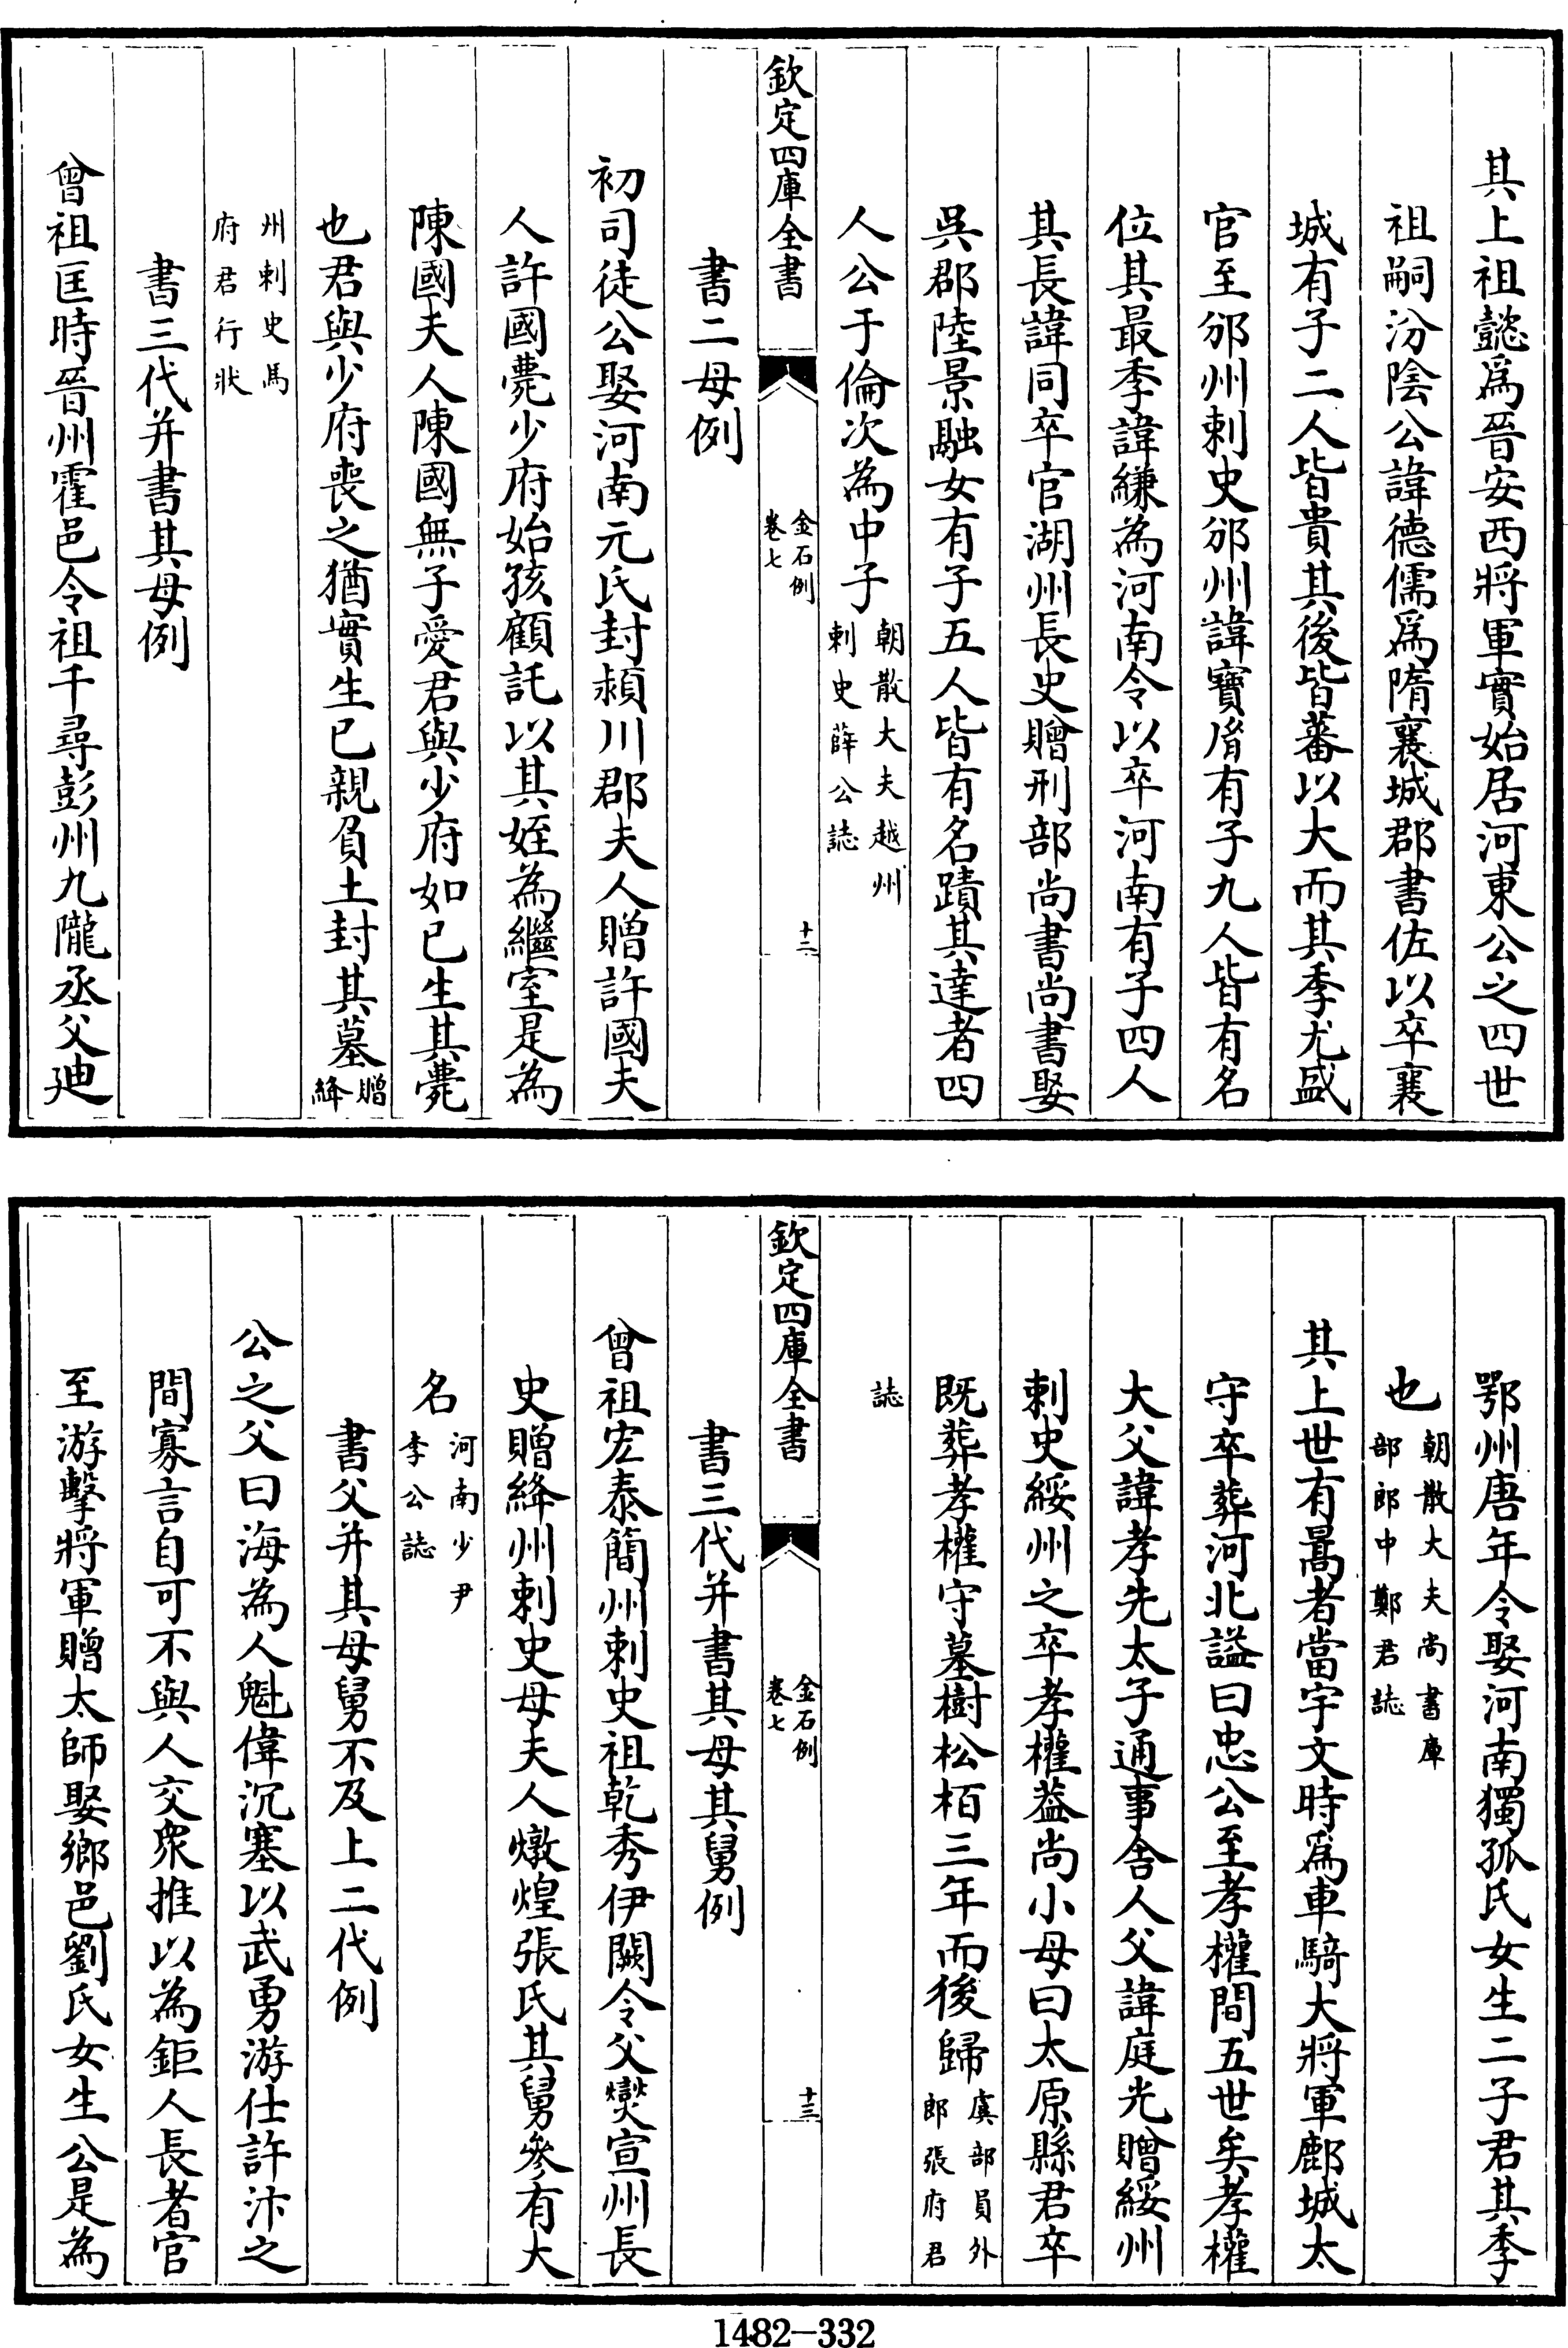 其上祖懿爲晉安西將軍實始居河東公之四世
祖嗣汾陰公諱德儒爲隋襄城郡書佐以卒襄
城有子二人皆貴其後皆蕃以大而其季尤盛
官至邠州刺史邠州諱寶胤有子九人皆有名
位其最季諱縑為河南令以卒河南有子四人
其長諱同卒官湖州長史贈刑部尚書尚書娶
吳郡陸景融女有子五人皆有名蹟其達者四
人公于倫次為中子朝散大夫越州刺史薛公誌
欽定四庫全書
金石例
卷七
十二
書二母例
初司徒公娶河南元氏封潁川郡夫人贈許國夫
人許國薨少府始孩顧託以其姪為繼室是為
陳國夫人陳國無子愛君與少府如已生其薨
也君與少府喪之猶實生已親負土封其墓贈絳
州刺史馬府君行狀
書三代并書其母例
曾祖匡時晉州霍邑令祖千尋彭州九隴丞父廸
鄂州唐年令娶河南獨孤氏女生二子君其季
也朝散大夫尚書庫部郎中鄭君誌
其上世有暠者當宇文時爲車騎大將軍鄜城太
守卒葬河北謚曰忠公至孝權間五世矣孝權
大父諱孝先太子通事舍人父諱庭光贈綏州
刺史綏州之卒孝權蓋尚小母曰太原縣君卒
既葬孝權守墓樹松栢三年而後歸虞部員外郎張府君
誌
欽定四庫全書
金石例
卷七
十三
書三代并書其母其舅例
曾祖宏泰簡州刺史祖乾秀伊闕令父爕宣州長
史贈絳州刺史母夫人燉煌張氏其舅參有大
名河南少尹李公誌
書父并其母舅不及上二代例
公之父曰海為人魁偉沉塞以武勇游仕許汴之
間寡言自可不與人交衆推以為鉅人長者官
至游擊將軍贈太師娶鄉邑劉氏女生公是為
1482—332